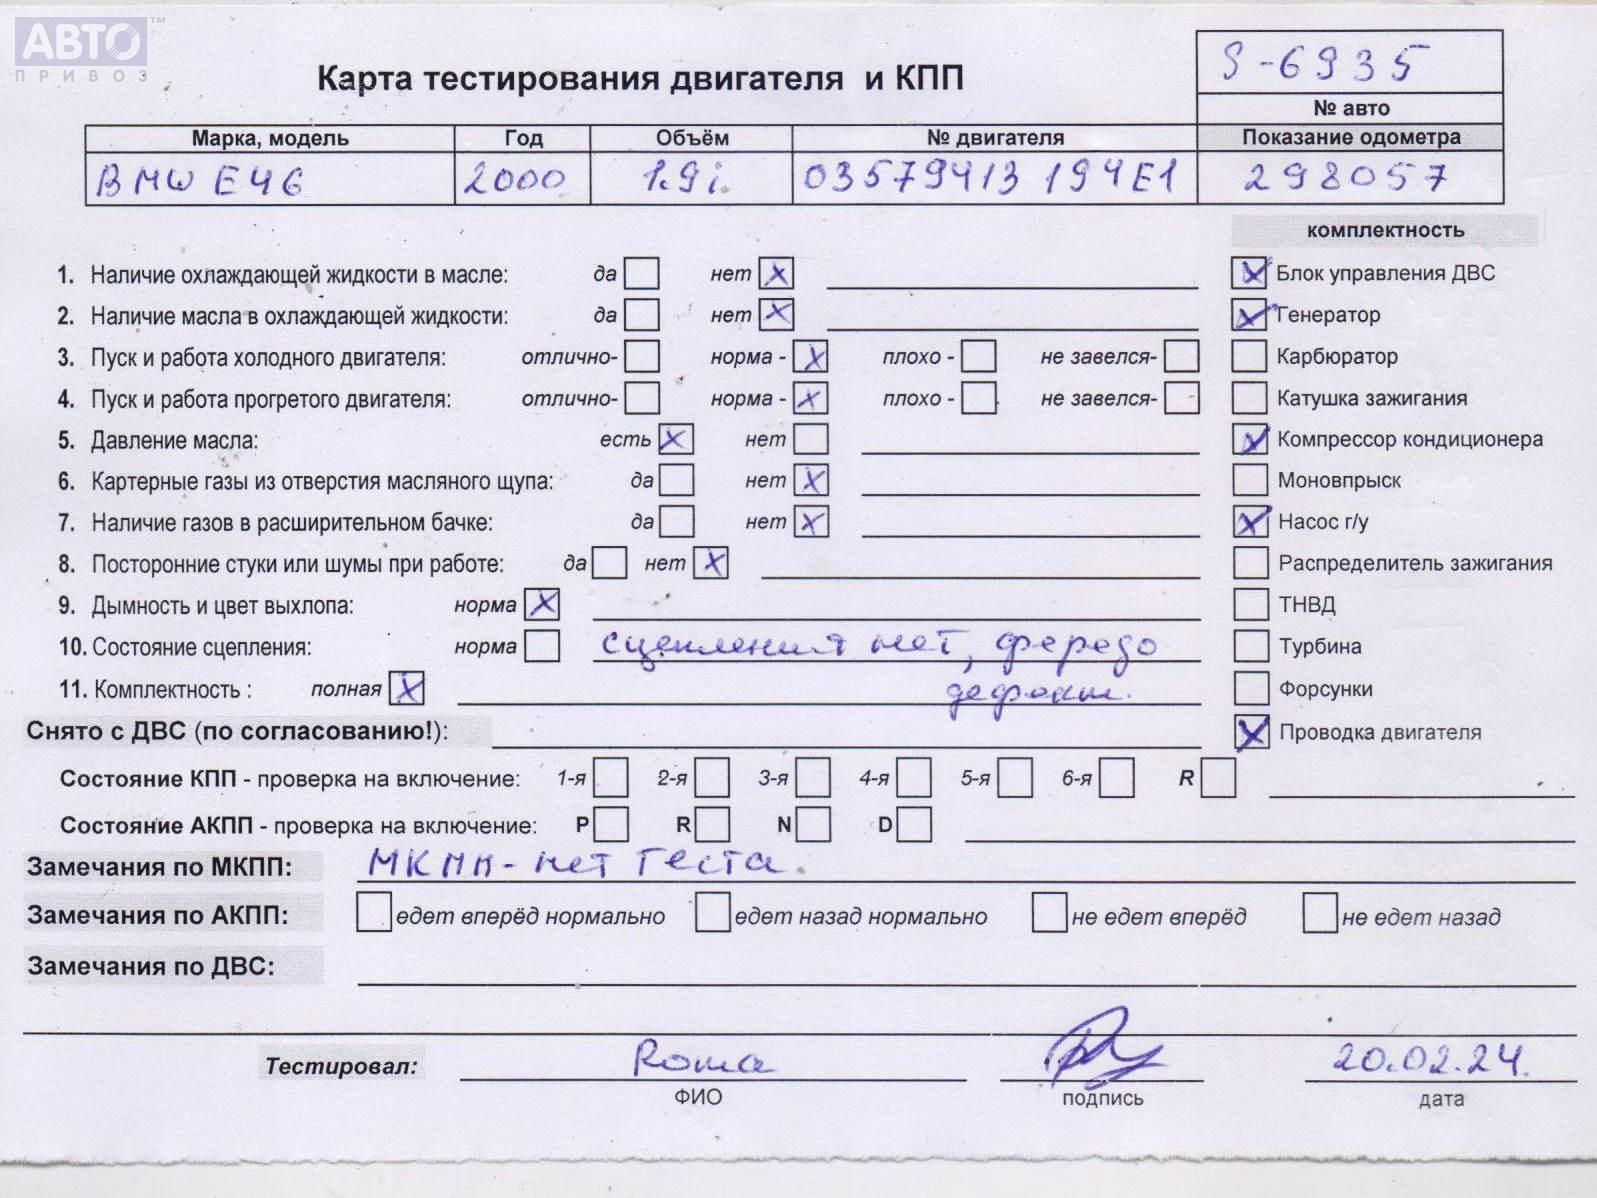 АВТО™
ПРИВОЗ
Карта тестирования двигателя и КПП
S-6935
№ авто
Марка, модель Год Объём № двигателя Показание одометра
BMW E46 2000 1.9i. 03579413 194E1 298057
комплектность
1. Наличие охлаждающей жидкости в масле: да нет X Блок управления ДВС
2. Наличие масла в охлаждающей жидкости: да нет X Генератор
3. Пуск и работа холодного двигателя: отлично- норма - X плохо - не завелся- Карбюратор
4. Пуск и работа прогретого двигателя: отлично- норма - X плохо - не завелся- Катушка зажигания
5. Давление масла: есть X нет Компрессор кондиционера
6. Картерные газы из отверстия масляного щупа: да нет X Моновпрыск
7. Наличие газов в расширительном бачке: да нет X Насос г/у
8. Посторонние стуки или шумы при работе: да нет X Распределитель зажигания
9. Дымность и цвет выхлопа: норма X ТНВД
10. Состояние сцепления: норма сцепления нет, фередо Турбина
11. Комплектность : полная X дефект. Форсунки
Снято с ДВС (по согласованию!): X Проводка двигателя
Состояние КПП - проверка на включение: 1-я 2-я 3-я 4-я 5-я 6-я R
Состояние АКПП - проверка на включение: P R N D
Замечания по МКПП: МКПП - нет теста.
Замечания по АКПП: едет вперёд нормально едет назад нормально не едет вперёд не едет назад
Замечания по ДВС:
Тестировал: Roma 20.02.24.
ФИО подпись дата